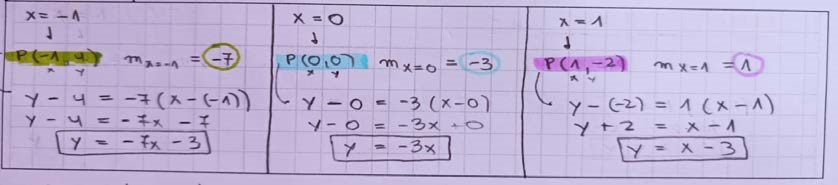 x = -1
↓
P(-1,4) m x=-1 = -7
x y
y - 4 = -7(x-(-1))
y - 4 = -7x - 7
y = -7x - 3
x = 0
↓
P(0,0) m x=0 = -3
x y
y - 0 = -3(x-0)
y - 0 = -3x + 0
y = -3x
x = 1
↓
P(1,-2) m x=1 = 1
x y
y - (-2) = 1(x-1)
y + 2 = x - 1
y = x - 3